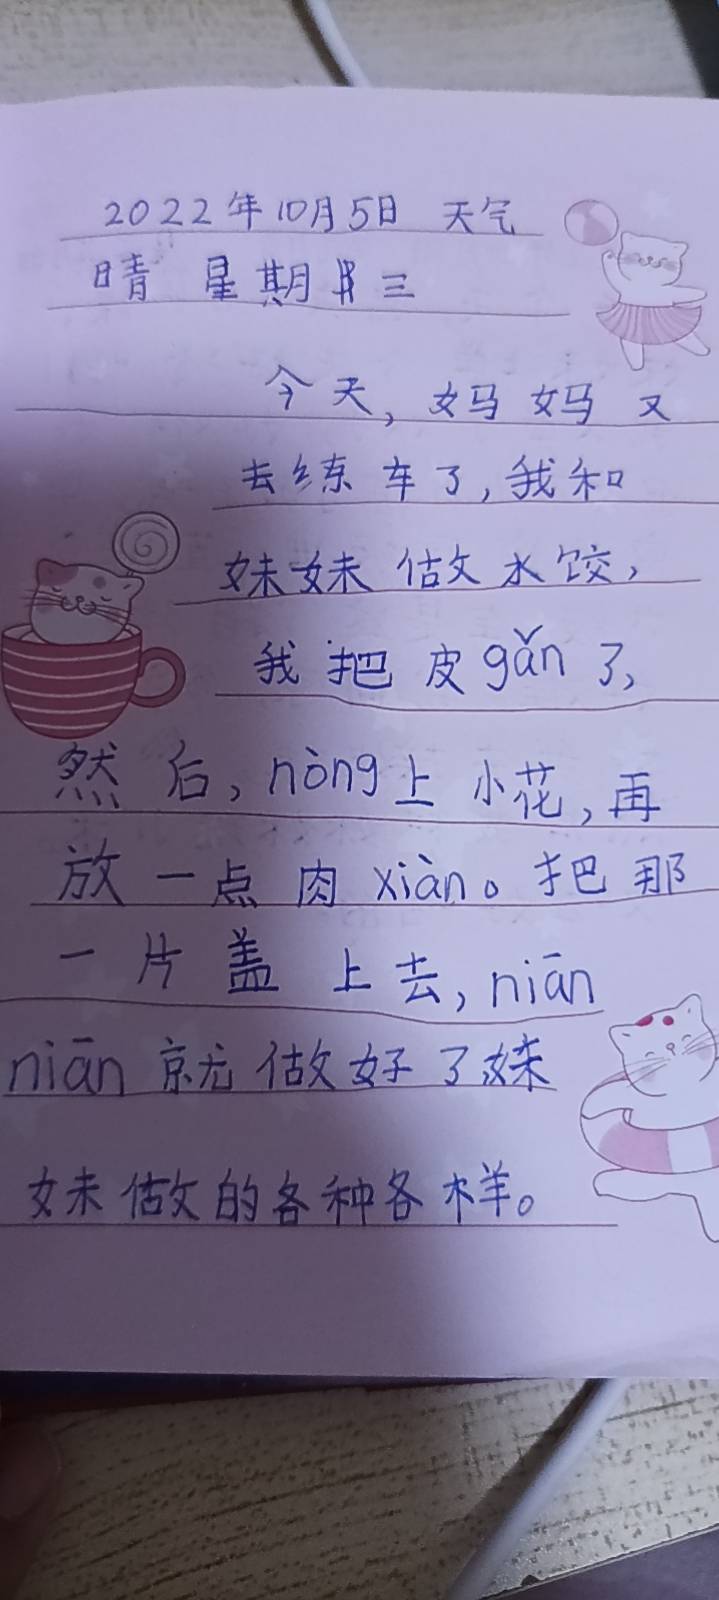 2022年10月5日 天气
晴 星期三
今天,妈妈又
去练车了,我和
妹妹做水饺,
我把皮gǎn了,
然后,nòng上小花,再
放一点肉xiàn。把那
一片盖上去,niān
niān就做好了妹
妹做的各种各样。